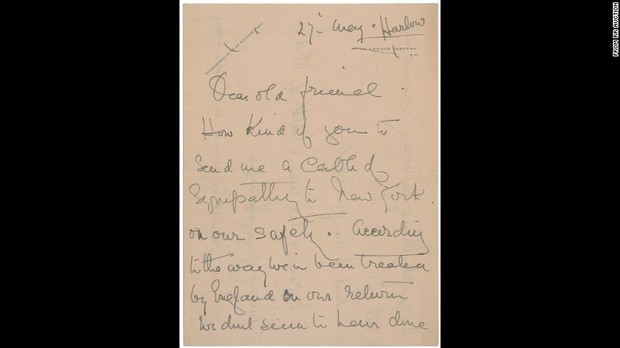 27 May. Harlow
Dear old friend.
How Kind of you to
send me a Cable of
Sympathy to New York.
on our safety.. According
to the way we've been treated
by England on our return
we didnt seem to have done
FROM RR AUCTION